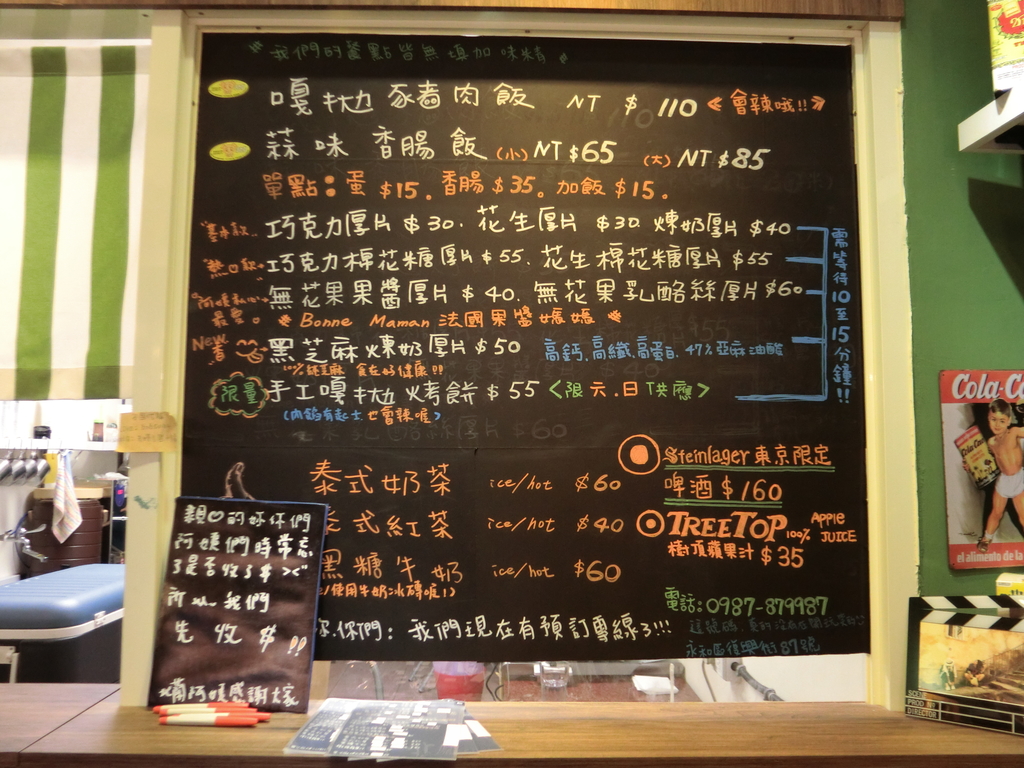 我們的餐點皆無填加味精
嘎抋豕嗇肉飯 NT $110 <<會辣哦!!>>
蒜味香腸飯 (小) NT $65 (大) NT $85
單點:蛋 $15. 香腸 $35。加飯 $15.
基本款.. 巧克力厚片 $30. 花生厚片 $30. 煉奶厚片 $40
熱 巧克力棉花糖厚片 $55. 花生棉花糖厚片 $55
無花果果醬厚片 $40. 無花果乳酪絲厚片 $60
最愛。 Bonne Maman 法國果醬
New 黑芝麻煉奶厚片 $50 高鈣.高纖.高蛋. 47%亞麻油酸
食在好健康!!
限量 手工 烤餅 $55 <限六.日供應>
也會辣喔>
需等待10至15分鐘!!
泰式奶茶 ice/hot $60
式紅茶 ice/hot $40
黑糖牛奶 ice/hot $60
使用牛奶冰磚喔!)
你們: 我們現在有預訂專線了!!!
Steinlager 東京限定
啤酒 $160
TREETOP 100% APPLE JUICE
樹頂蘋果汁 $35
電話:0987-879987
永和區復興街87號
親♡的妳你們
阿姨們時常忘
了是否收了$ ><"
所以..我們
先收$!!
阿姨感謝大家
Coca-Co
el alimento de la
PROD NO
DIRECTOR